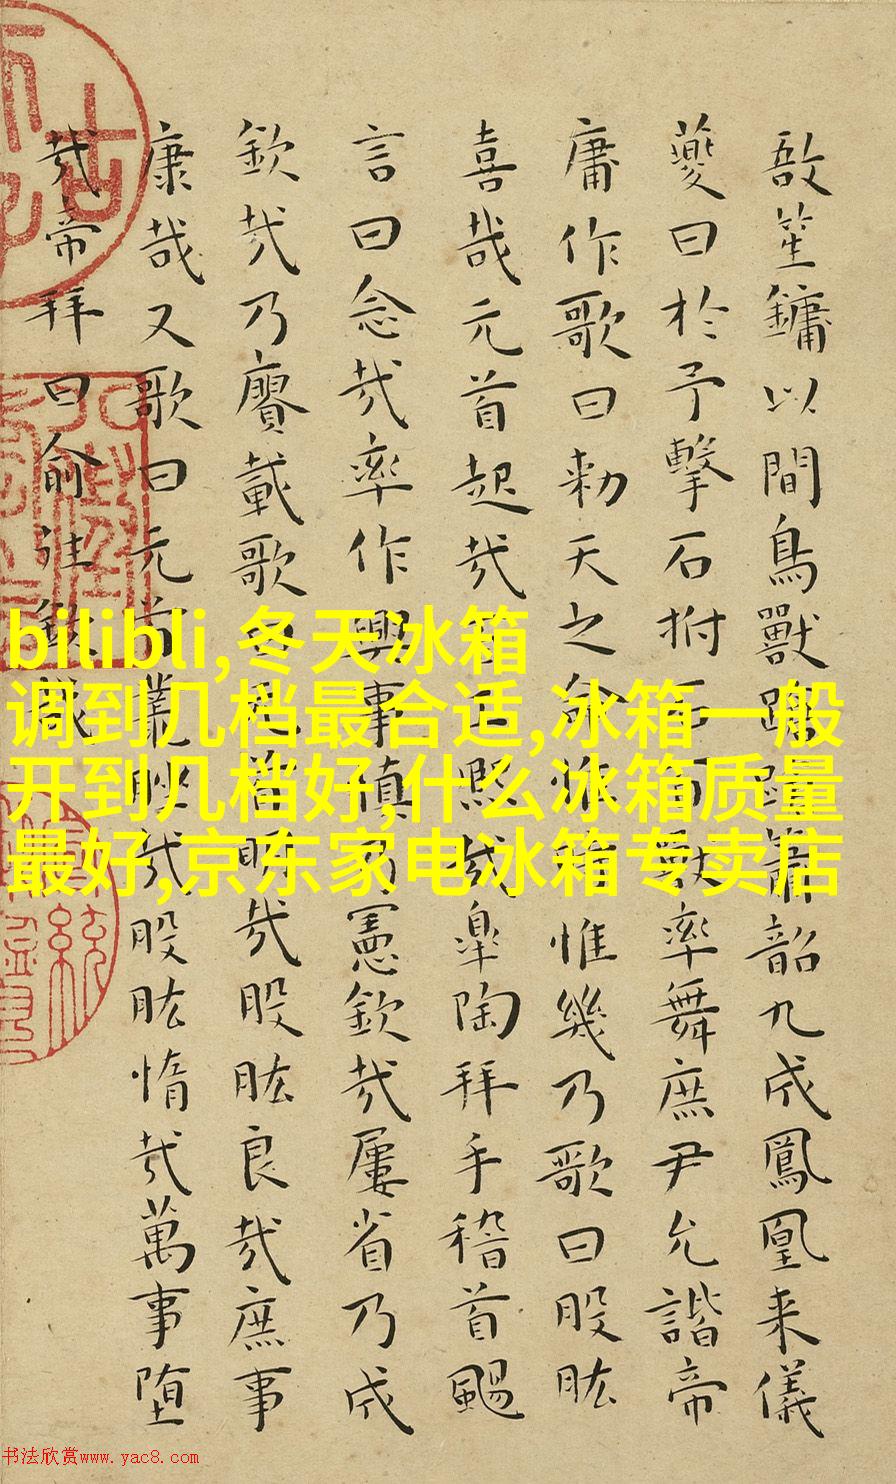 敔笙鏞以間鳥獸蹌蹌簫韶九成鳳凰来儀
夔曰於予擊石拊石百獸率舞庶尹允諧帝
庸作歌曰勑天之命惟時惟幾乃歌曰股肱
喜哉元首起哉百工熙哉皐陶拜手稽首颺
言曰念哉率作興事慎乃憲欽哉屢省乃成
欽哉乃賡載歌曰元首明哉股肱良哉庶事
康哉又歌曰元首叢脞哉股肱惰哉萬事堕
哉帝拜曰俞往欽哉
bilibli,冬天冰箱
调到几档最合适,冰箱一般
开到几档好,什么冰箱质量
最好,京东家电冰箱专卖店
书法欣赏www.yac8.com